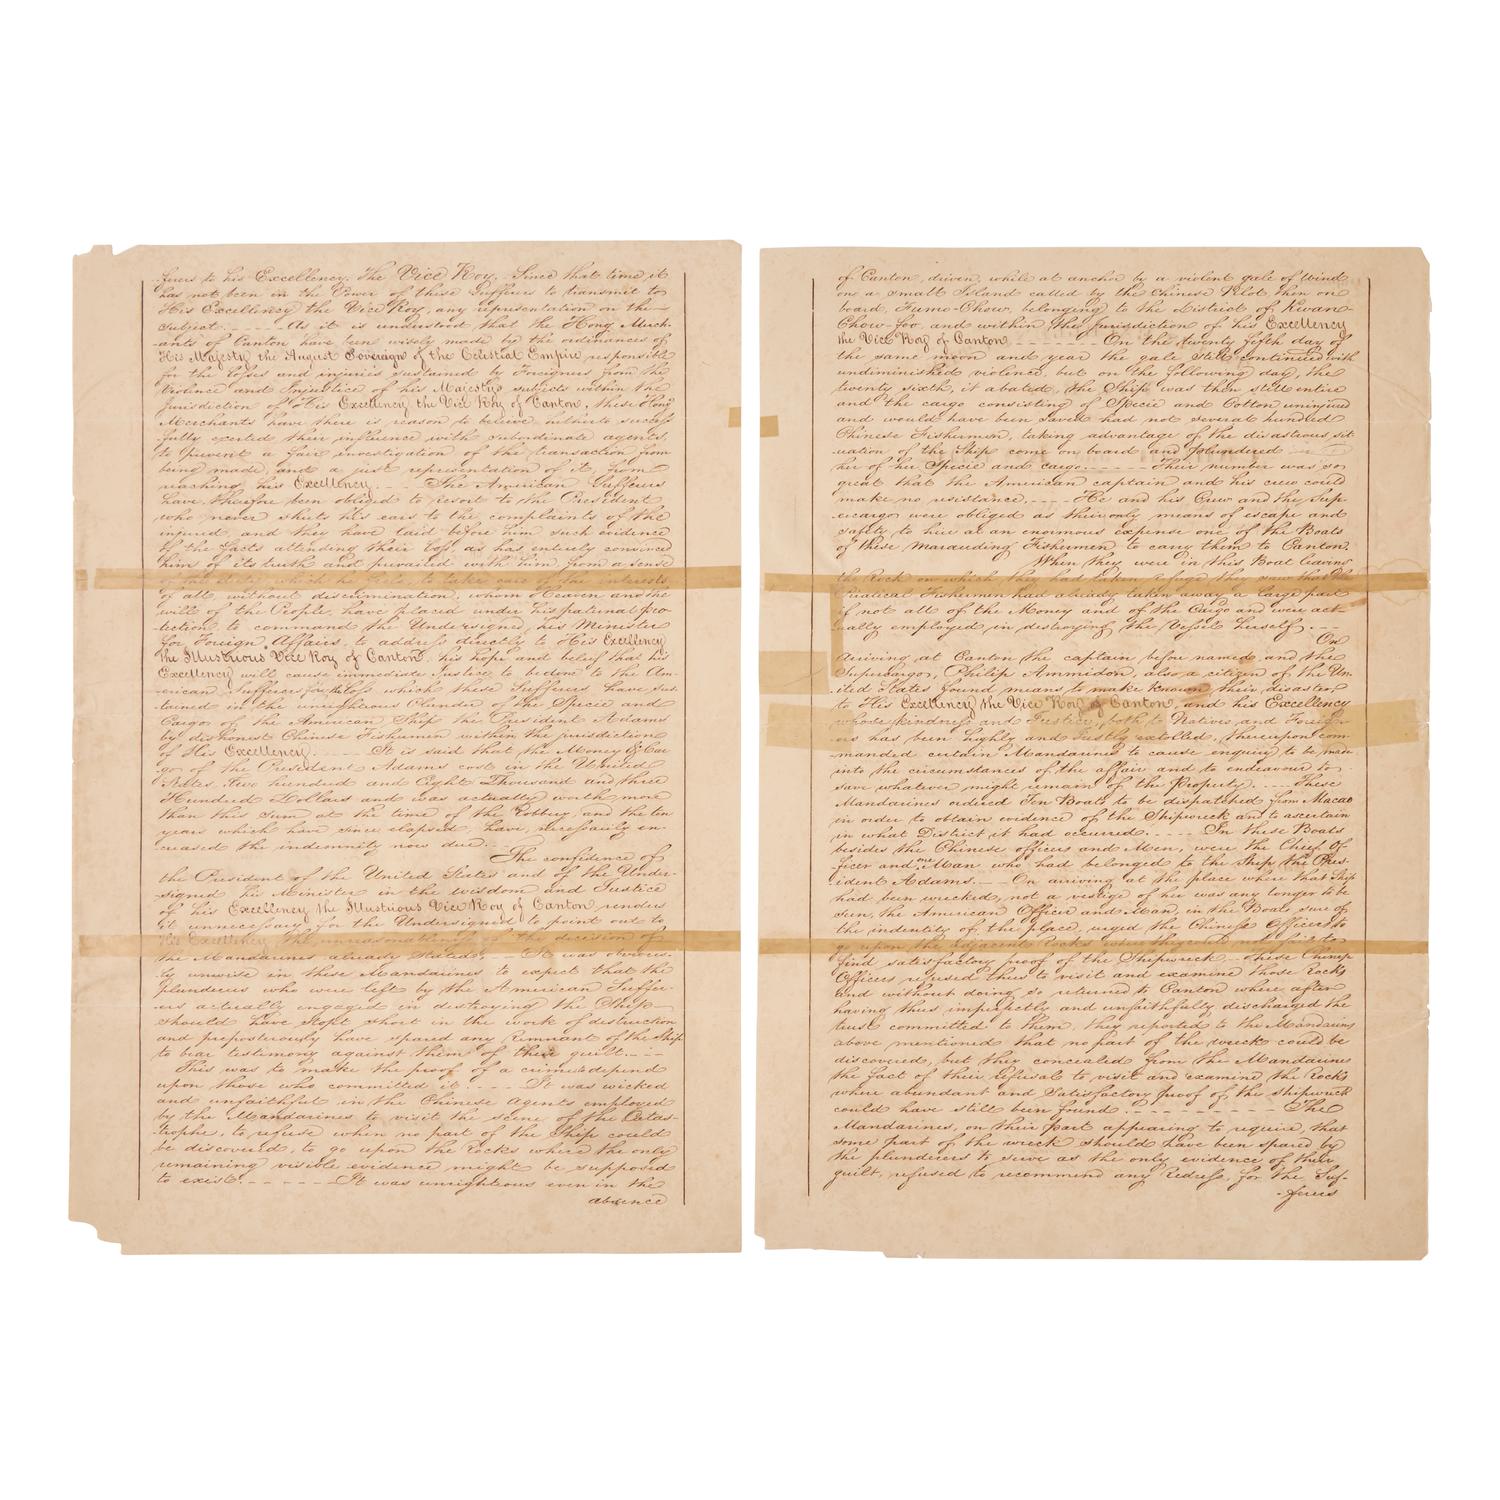 ferers to his Excellency, The Vice Roy. Since that time it
has not been in the Power of these Sufferers to transmit to
His Excellency the Vice Roy, any representation on the
subject. - - - - As it is understood that the Hong Merch-
ants of Canton have been wisely made by the ordinances of
His Majesty the August Sovereign of the Celestial Empire responsible
for the losses and injuries sustained by Foreigners from the
Violence and Injustice of his Majesty's subjects within the
jurisdiction of His Excellency the Vice Roy of Canton, these Hong
Merchants have there is reason to believe hitherto success
fully exerted their influence with subordinate agents,
to prevent a fair investigation of the transaction from
being made, and a just representation of it, from
reaching his Excellency. - - The American Sufferers
have therefore been obliged to resort to the President
who never shuts his ears to the complaints of the
injured and they have laid before him such evidence
of the facts attending their loss, as has entirely convinced
him of its truth and prevailed with him from a sense
of the duty which he feels to take care of the interests
of all without discrimination, whom Heaven and the
will of the People, have placed under his paternal pro-
tection to command the Undersigned, his Minister
for Foreign Affairs, to address directly to His Excellency
the Illustrious Vice Roy of Canton, his hope and belief that his
Excellency will cause immediate Justice to be done to the Am-
erican Sufferers for the loss which these Sufferers have sus-
tained in the unrighteous Plunder of the Specie and
Cargo of the American Ship the President Adams
by dishonest Chinese Fishermen within the jurisdiction
of His Excellency. - - - It is said that the Money & Car
go of the President Adams cost in the United
States, Two hundred and Eight Thousand and three
Hundred Dollars and was actually worth more
than this sum at the time of the Robbery, and the ten
years which have since elapsed, have, necessarily en-
creased the indemnity now due. - -
The confidence of
the President of the United States and of the Under-
signed his Minister in the wisdom and Justice
of his Excellency the Illustrious Vice Roy of Canton renders
it unnecessary for the Undersigned to point out to
His Excellency the unreasonableness of the decision of
the Mandarines already Stated. - - It was obvious-
ly unwise in these Mandarines to expect that the
plunderers who were left by the American Suffer-
ers actually engaged in destroying the Ship
should have stopt short in the work of destruction
and preposterously have spared any Remnant of the Ship
to bear testimony against them of their guilt. - - -
This was to make the proof of a crime depend
upon those who committed it. - - - It was wicked
and unfaithful in the Chinese Agents employed
by the Mandarines to visit the scene of the Catas-
trophe, to refuse when no part of the Ship could
be discovered, to go upon the Rocks where the only
remaining visible evidence might be supposed
to exist. - - - - - - It was unrighteous even in the
absence
of Canton, driven, while at anchor by a violent gale of Wind
on a small Island called by the Chinese Pilot then on
board, Fumo-Chow, belonging to the District of Kwan-
Chow-foo and within the jurisdiction of his Excellency
the Vice Roy of Canton. - - - - - - On the twenty fifth day of
the same moon and year the gale still continued with
undiminished violence, but on the following day, the
twenty sixth, it abated, the Ship was then still entire
and the cargo consisting of Specie and Cotton uninjured
and would have been saved had not several hundred
Chinese Fishermen, taking advantage of the disastrous sit
uation of the Ship come on board and plundered
her of her Specie and cargo. - - - - Their number was so
great that the American captain and his crew could
make no resistance. - - - He and his Crew and the Sup-
ercargo were obliged as their only means of escape and
safety to hire at an enormous expense one of the Boats
of these marauding Fishermen to carry them to Canton.
When they were in this Boat leaving
the Rock on which they had taken refuge they saw that the
Piratical Fishermen had already taken away a large part
if not all of the Money and of the Cargo and were act-
ually employed in destroying the Vessel herself. - - -
On
arriving at Canton the captain before named and the
Supercargo, Philip Ammidon, also a citizen of the Un-
ited States found means to make known their disaster
to His Excellency the Vice Roy of Canton, and his Excellency
whose kindness and Justice, both to Natives and Foreign-
ers has been highly and Justly extolled, thereupon com-
manded certain Mandarines to cause enquiry to be made
into the circumstances of the affair and to endeavour to
save whatever might remain of the Property. - - - These
Mandarines ordered Ten Boats to be dispatched from Macao
in order to obtain evidence of the Shipwreck and to ascertain
in what District it had occurred. - - - - In these Boats
besides the Chinese officers and Men, were the Chief Of
ficer and one Man who had belonged to the Ship the Pres-
ident Adams. - - On arriving at the place where that Ship
had been wrecked, not a vestige of her was any longer to be
seen, the American Officer and Man, in the Boats sure of
the indentity of the place, urged the Chinese Officers to
go upon the adjacent Rocks where they could not fail to
find satisfactory proof of the Shipwreck. - These Chinese
Officers refused thus to visit and examine those Rocks
and without doing so returned to Canton where after
having thus imperfectly and unfaithfully discharged the
trust committed to them, they reported to the Mandarins
above mentioned that no part of the wreck could be
discovered, but they concealed from the Mandarines
the fact of their refusal to visit and examine the Rocks
where abundant and Satisfactory proof of the shipwreck
could have still been found. - - - - - - - - The
Mandarines, on their part appearing to require, that
some part of the wreck should have been spared by
the plunderers to serve as the only evidence of their
guilt, refused to recommend any Redress, for the Suf-
-ferers